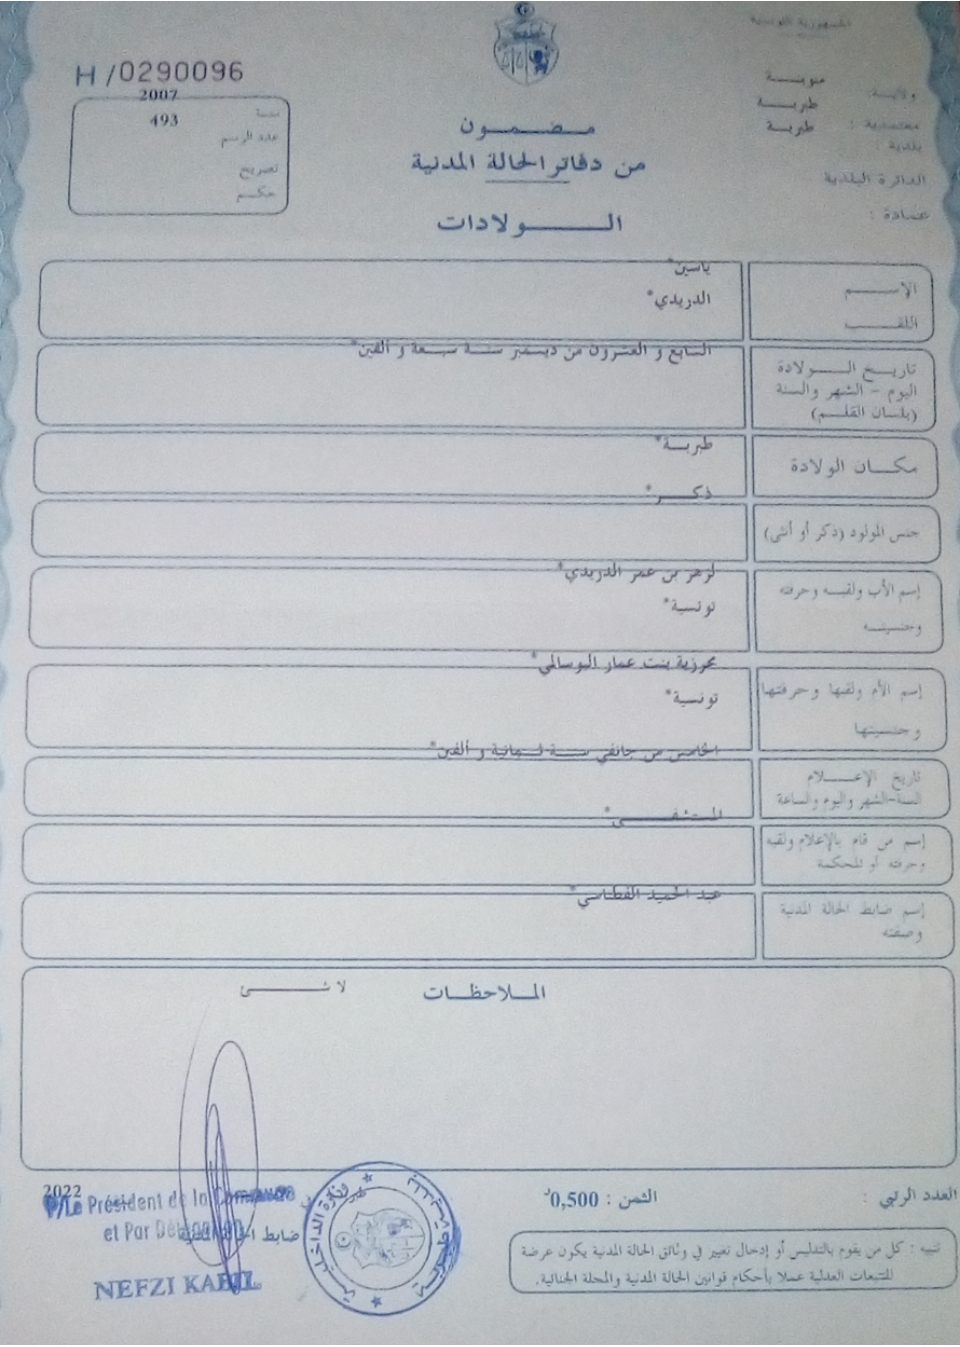 الجمهورية التونسية
H/0290096
ولاية: منوبة
معتمدية : طبربة
بلدية : طبربة
الدائرة البلدية
عمادة :
سنة 2007
عدد الرسم 493
تصريح
حكم
مضمون
من دفاتر الحالة المدنية
الولادات
الاسم ياسين*
اللقب الدريدي*
تاريخ الولادة
اليوم - الشهر والسنة
(بلسان القلم)
السابع و العشرون من ديسمبر سنة سبعة و ألفين*
مكان الولادة طبربة*
جنس المولود (ذكر أو أنثى) ذكر*
إسم الأب ولقبه وحرفته لزهر بن عمر الدريدي*
وجنسيته تونسية*
إسم الأم ولقبها وحرفتها محرزية بنت عمار البوسالمي*
وجنسيتها تونسية*
تاريخ الإعلام
السنة-الشهر واليوم والساعة
الخامس من جانفي سنة ثمانية و ألفين*
إسم من قام بالإعلام ولقبه
وحرفته أو المحكمة
المستشفى*
إسم ضابط الحالة المدنية
وصفته
عبد الحميد الغطاسي*
الملاحظات
لا شئ
العدد الرتبي :
الثمن : 0,500د
2022
P/Le Président de la Commune
et Par Délégation
ضابط الحالة المدنية
NEFZI KABIL
وزارة الداخلية
تنبيه : كل من يقوم بالتدليس أو إدخال تغيير في وثائق الحالة المدنية يكون عرضة
للتتبعات العدلية عملا بأحكام قوانين الحالة المدنية والمجلة الجنائية.